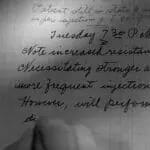 Patient still in state of
injection of
Tuesday 7:30 P.M.
Note increased resistan
Necessitating stronger a
more frequent injection
However, will perform
di